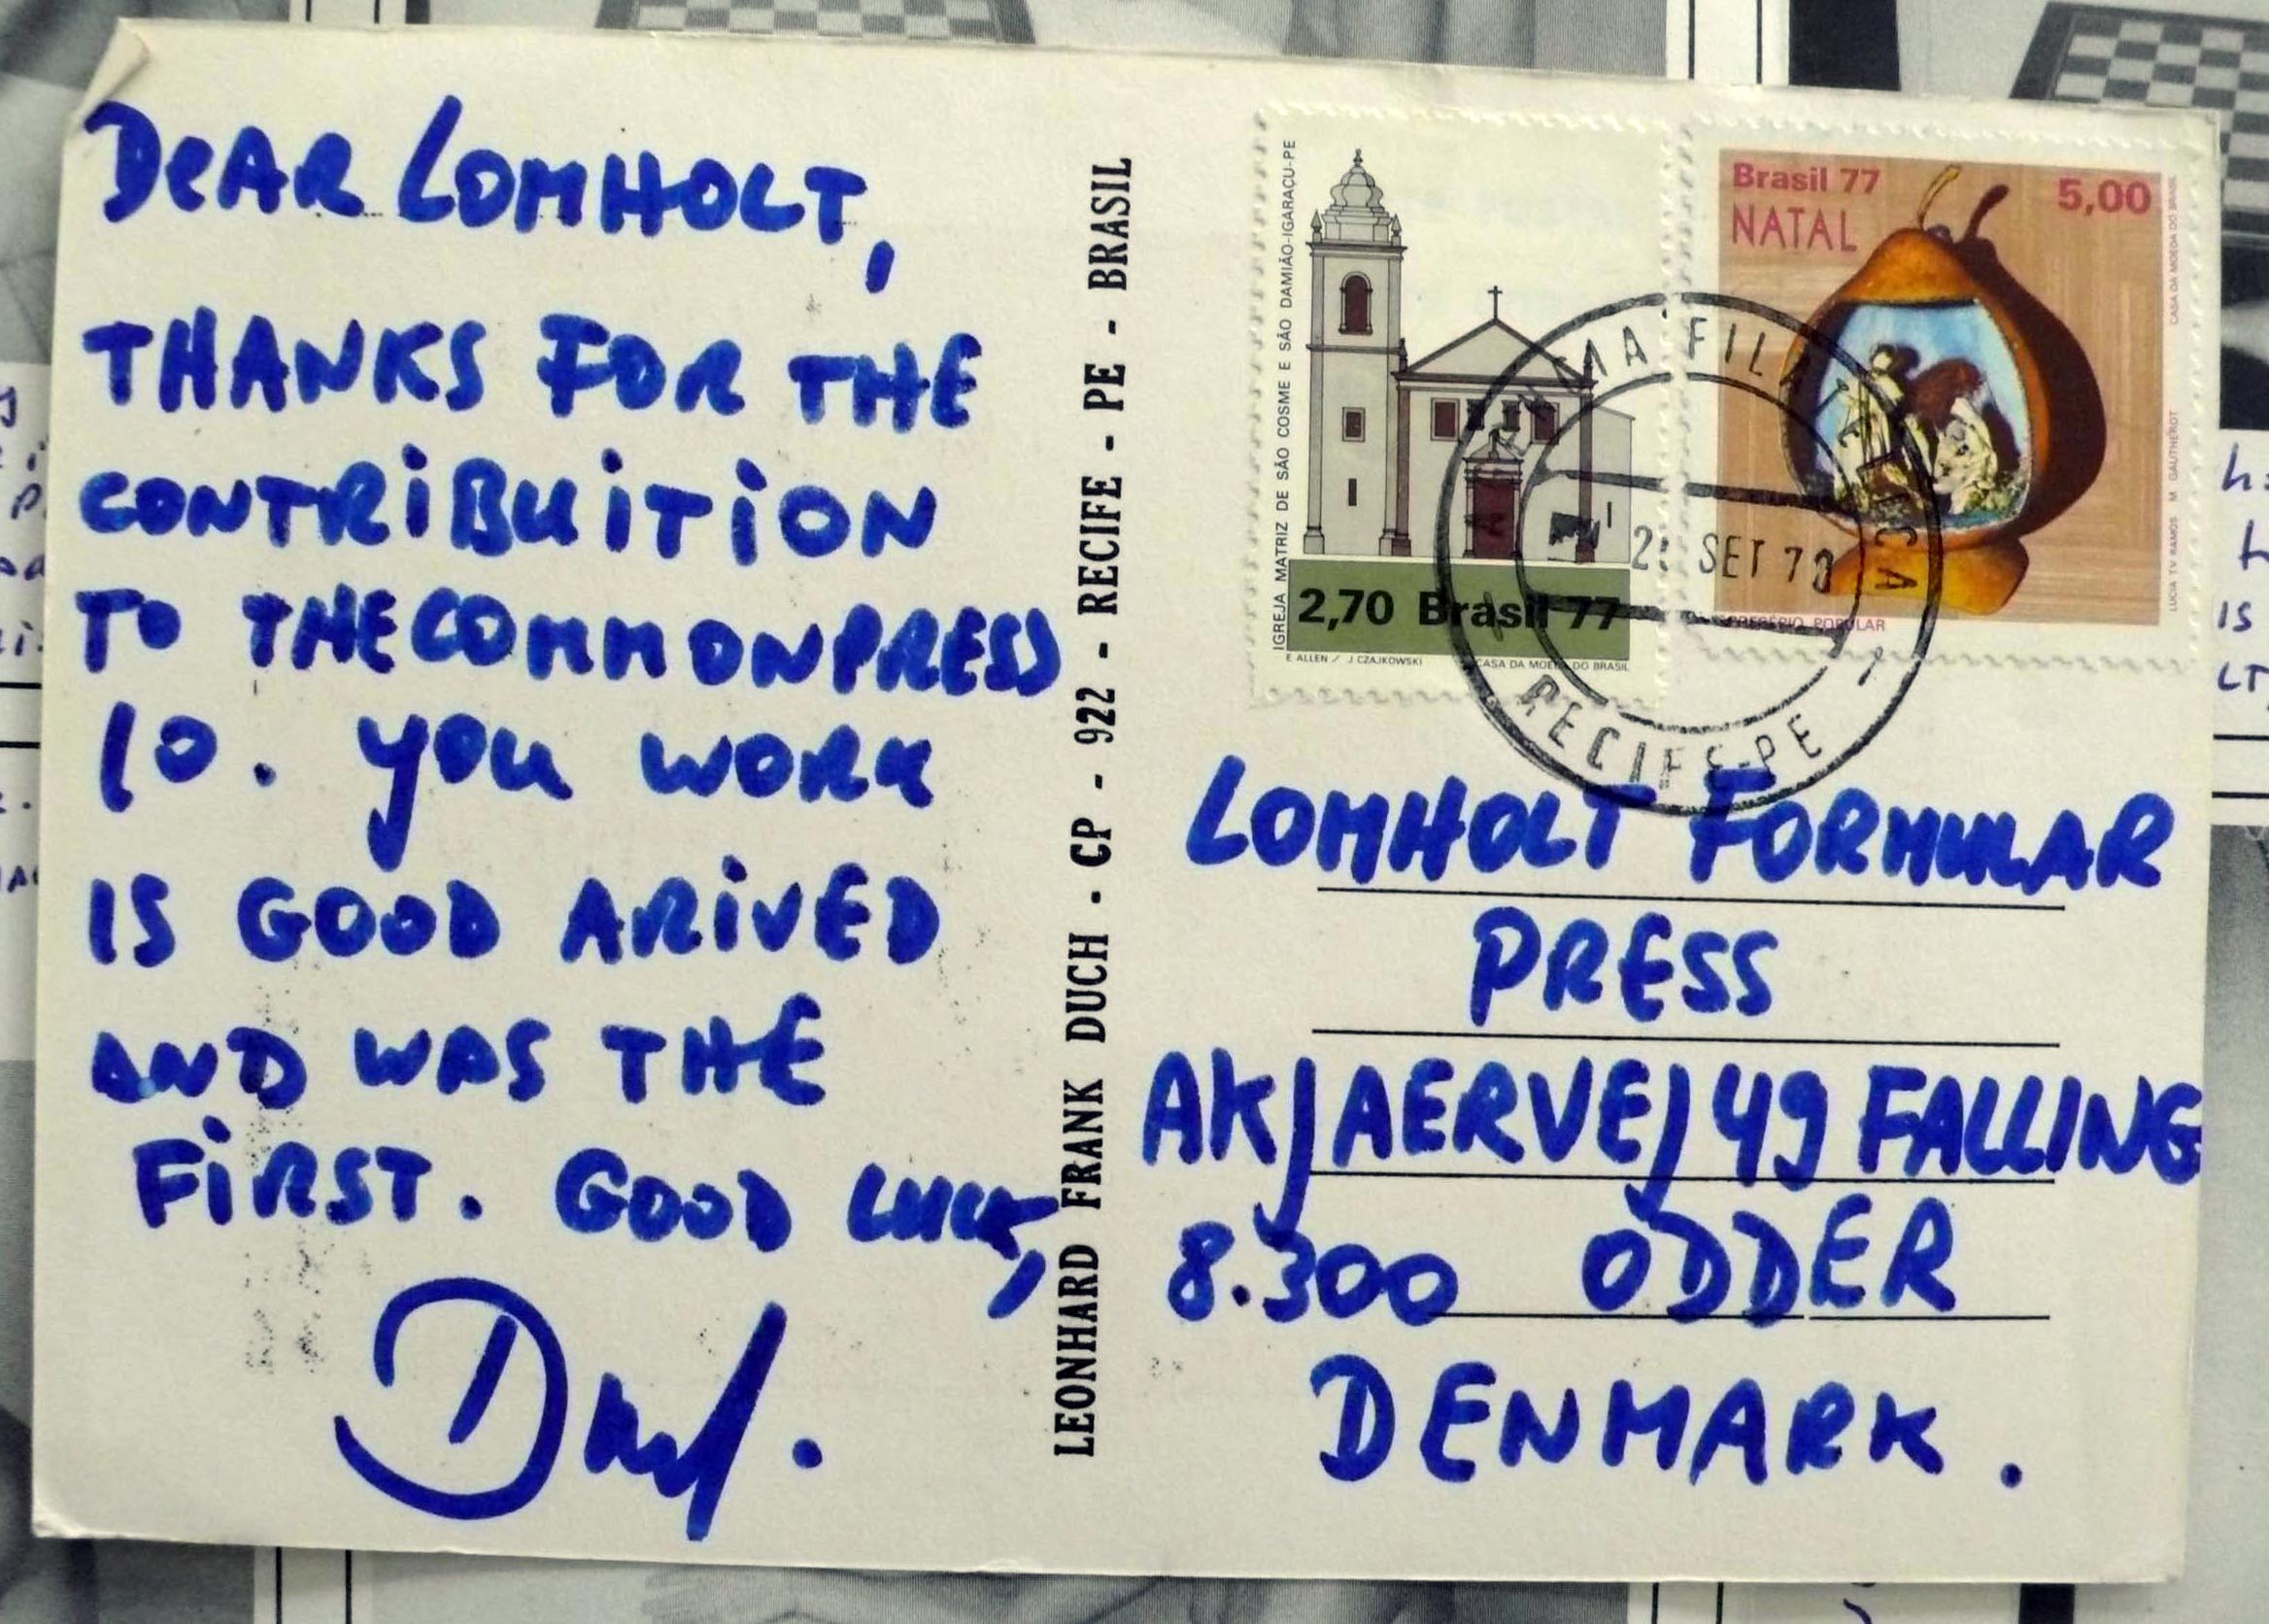 DEAR LOMHOLT,
THANKS FOR THE
CONTRIBUITION
TO THE COMMONPRESS
10. YOU WORK
IS GOOD ARIVED
AND WAS THE
FIRST. GOOD LUCK,
LEONHARD FRANK DUCH - CP - 922 - RECIFE - PE - BRASIL
IGREJA MATRIZ DE SÃO COSME E SÃO DAMIÃO-IGARAÇU-PE
2,70 Brasil 77
E ALLEN / J. CZAJKOWSKI CASA DA MOEDA DO BRASIL
Brasil 77 5,00
NATAL
CASA DA MOEDA DO BRASIL
LUCIA TV RAMOS M GAUTHEROT
PRESÉPIO POPULAR
SET
RECIFE-PE
LOMHOLT FORMULAR
PRESS
AKJAERVEJ 49 FALLING
8.300 ODDER
DENMARK.